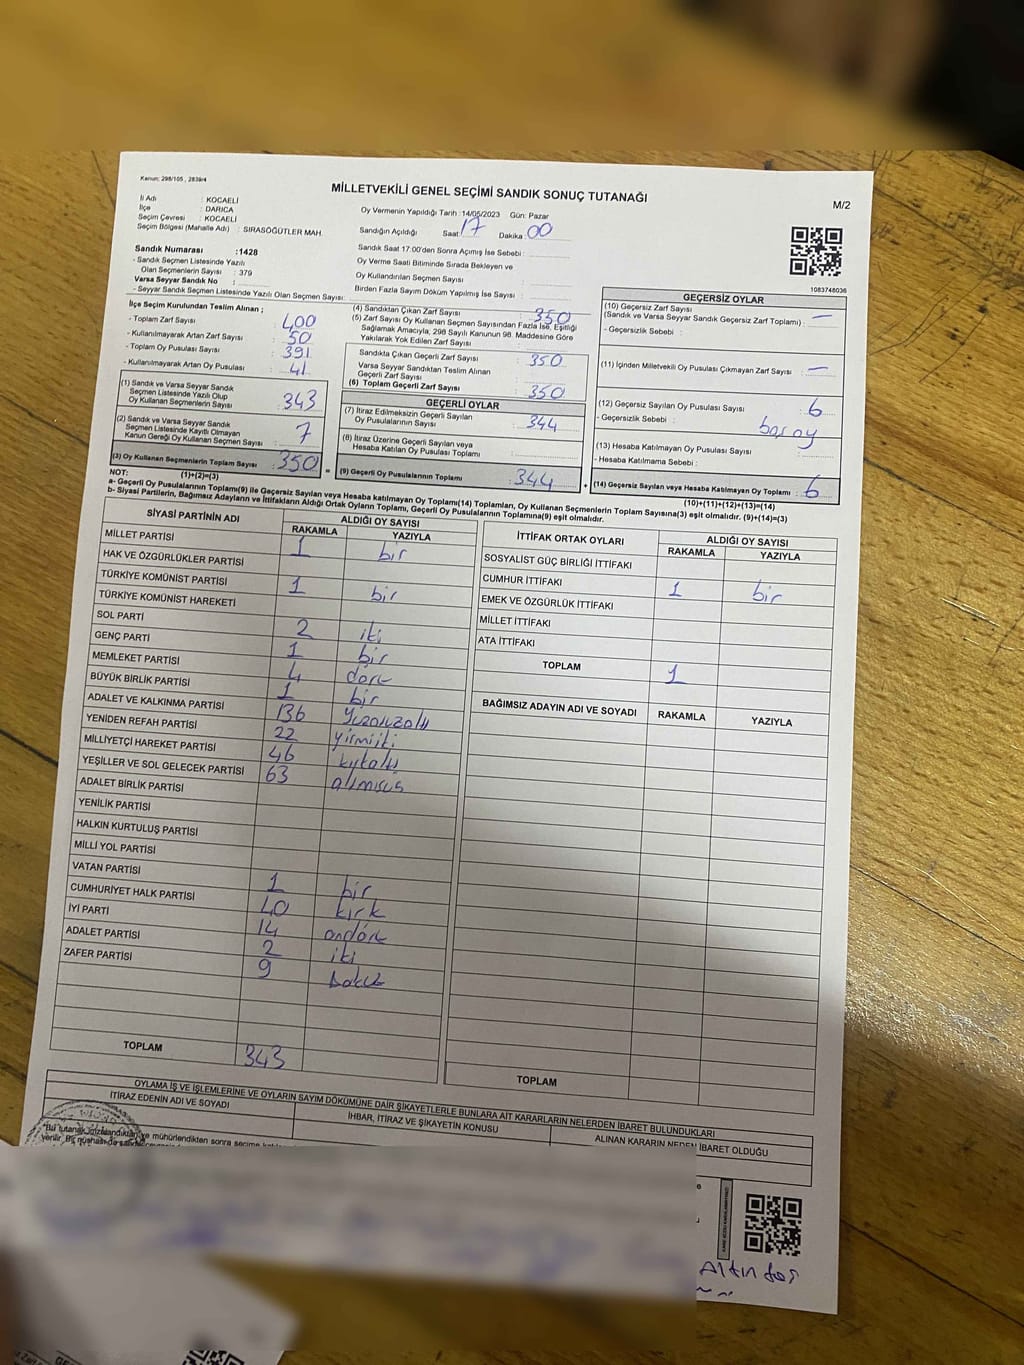 Kanun: 298/105 , 2839/4
MİLLETVEKİLİ GENEL SEÇİMİ SANDIK SONUÇ TUTANAĞI
M/2
İli Adı : KOCAELİ
İlçe : DARICA
Seçim Çevresi : KOCAELİ
Seçim Bölgesi (Mahalle Adı) : SIRASÖĞÜTLER MAH.
Oy Vermenin Yapıldığı Tarih :14/05/2023 Gün: Pazar
Sandığın Açıldığı Saat 17 Dakika 00
Sandık Saat 17:00'den Sonra Açımış İse Sebebi :
Oy Verme Saati Bitiminde Sırada Bekleyen ve
Oy Kullandırılan Seçmen Sayısı :
Birden Fazla Sayım Döküm Yapılmış İse Sayısı :
1083748036
Sandık Numarası :1428
- Sandık Seçmen Listesinde Yazılı
Olan Seçmenlerin Sayısı : 379
Varsa Seyyar Sandık No :
- Seyyar Sandık Seçmen Listesinde Yazılı Olan Seçmen Sayısı:
İlçe Seçim Kurulundan Teslim Alınan ;
- Toplam Zarf Sayısı : 400
- Kullanılmayarak Artan Zarf Sayısı : 50
- Toplam Oy Pusulası Sayısı : 391
- Kullanılmayarak Artan Oy Pusulası : 41
(1) Sandık ve Varsa Seyyar Sandık
Seçmen Listesinde Yazılı Olup
Oy Kullanan Seçmenlerin Sayısı : 343
(2) Sandık ve Varsa Seyyar Sandık
Seçmen Listesinde Kayıtlı Olmayan
Kanun Gereği Oy Kullanan Seçmen Sayısı : 7
(3) Oy Kullanan Seçmenlerin Toplam Sayısı : 350
(1)+(2)=(3)
(4) Sandıktan Çıkan Zarf Sayısı : 350
(5) Zarf Sayısı Oy Kullanan Seçmen Sayısından Fazla İse, Eşitliği
Sağlamak Amacıyla, 298 Sayılı Kanunun 98. Maddesine Göre
Yakılarak Yok Edilen Zarf Sayısı :
Sandıkta Çıkan Geçerli Zarf Sayısı : 350
Varsa Seyyar Sandıktan Teslim Alınan
Geçerli Zarf Sayısı :
(6) Toplam Geçerli Zarf Sayısı : 350
GEÇERLİ OYLAR
(7) İtiraz Edilmeksizin Geçerli Sayılan
Oy Pusulalarının Sayısı : 344
(8) İtiraz Üzerine Geçerli Sayılan veya
Hesaba Katılan Oy Pusulası Toplamı :
(9) Geçerli Oy Pusulalarının Toplamı : 344
GEÇERSİZ OYLAR
(10) Geçersiz Zarf Sayısı
(Sandık ve Varsa Seyyar Sandık Geçersiz Zarf Toplamı) : —
- Geçersizlik Sebebi :
(11) İçinden Milletvekili Oy Pusulası Çıkmayan Zarf Sayısı : —
(12) Geçersiz Sayılan Oy Pusulası Sayısı : 6
- Geçersizlik Sebebi : boş oy
(13) Hesaba Katılmayan Oy Pusulası Sayısı :
- Hesaba Katılmama Sebebi :
(14) Geçersiz Sayılan veya Hesaba Katılmayan Oy Toplamı : 6
(10)+(11)+(12)+(13)=(14)
NOT:
a- Geçerli Oy Pusulalarının Toplamı(9) ile Geçersiz Sayılan veya Hesaba katılmayan Oy Toplamı(14) Toplamları, Oy Kullanan Seçmenlerin Toplam Sayısına(3) eşit olmalıdır. (9)+(14)=(3)
b- Siyasi Partilerin, Bağımsız Adayların ve İttifakların Aldığı Ortak Oyların Toplamı, Geçerli Oy Pusulalarının Toplamına(9) eşit olmalıdır.
SİYASİ PARTİNİN ADI
ALDIĞI OY SAYISI
RAKAMLA YAZIYLA
MİLLET PARTİSİ 1 bir
HAK VE ÖZGÜRLÜKLER PARTİSİ
TÜRKİYE KOMÜNİST PARTİSİ 1 bir
TÜRKİYE KOMÜNİST HAREKETİ
SOL PARTİ 2 iki
GENÇ PARTİ 1 bir
MEMLEKET PARTİSİ 4 dört
BÜYÜK BİRLİK PARTİSİ 1 bir
ADALET VE KALKINMA PARTİSİ 136 Yüzotuzaltı
YENİDEN REFAH PARTİSİ 22 yirmiiki
MİLLİYETÇİ HAREKET PARTİSİ 46 kırkaltı
YEŞİLLER VE SOL GELECEK PARTİSİ 63 altmışüç
ADALET BİRLİK PARTİSİ
YENİLİK PARTİSİ
HALKIN KURTULUŞ PARTİSİ
MİLLİ YOL PARTİSİ
VATAN PARTİSİ 1 bir
CUMHURİYET HALK PARTİSİ 40 kırk
İYİ PARTİ 14 ondört
ADALET PARTİSİ 2 iki
ZAFER PARTİSİ 9 dokuz
TOPLAM 343
İTTİFAK ORTAK OYLARI
ALDIĞI OY SAYISI
RAKAMLA YAZIYLA
SOSYALİST GÜÇ BİRLİĞİ İTTİFAKI
CUMHUR İTTİFAKI 1 bir
EMEK VE ÖZGÜRLÜK İTTİFAKI
MİLLET İTTİFAKI
ATA İTTİFAKI
TOPLAM 1
BAĞIMSIZ ADAYIN ADI VE SOYADI RAKAMLA YAZIYLA
TOPLAM
OYLAMA İŞ VE İŞLEMLERİNE VE OYLARIN SAYIM DÖKÜMÜNE DAİR ŞİKAYETLERLE BUNLARA AİT KARARLARIN NELERDEN İBARET BULUNDUKLARI
İTİRAZ EDENİN ADI VE SOYADI
İHBAR, İTİRAZ VE ŞİKAYETİN KONUSU
ALINAN KARARIN NEDEN İBARET OLDUĞU
Altıntaş